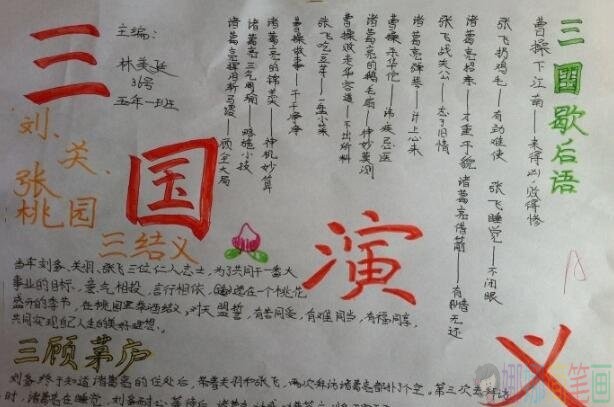 三国演义
主编：
林美廷
36号
五年一班
三国歇后语
曹操下江南——来得凶，败得惨
张飞扔鸡毛——有劲难使
张飞睡觉——不闭眼
诸葛亮招亲——才重于貌
诸葛亮借箭——有借无还
张飞战关公——忘了旧情
诸葛亮弹琴——计上心来
曹操杀华佗——讳疾忌医
诸葛亮的鹅毛扇——神妙莫测
曹操败走华容道——不出所料
张飞吃豆芽——一盘小菜
曹操做事——干干净净
诸葛亮的锦囊——神机妙算
诸葛亮三气周瑜——略施小技
诸葛亮挥泪斩马谡——顾全大局
刘、关、
张
桃园
三结义
当年刘备、关羽、张飞三位仁人志士，为了共同干一番大
事业的目标，意气相投，言行相依，选在一个桃花
盛开的季节，在桃园里举酒结义，对天盟誓，有苦同受，有难同当，有福同享，
共同实现自己人生的美好理想。
三顾茅庐
刘备终于知道诸葛亮的住处后，带着关羽和张飞，两次拜访诸葛亮都扑了个空。第三次去拜访
时，诸葛亮在睡觉，刘备
A